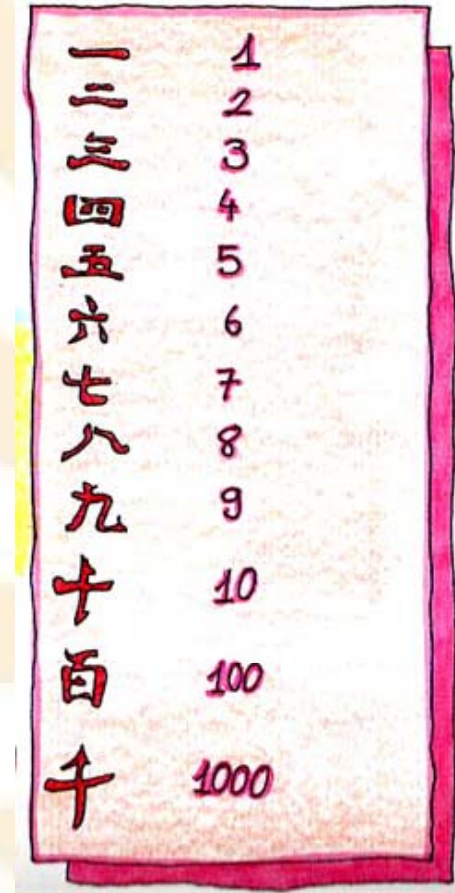 一 1
二 2
三 3
四 4
五 5
六 6
七 7
八 8
九 9
十 10
百 100
千 1000